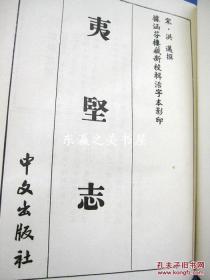 宋·洪邁撰
據涵芬樓藏新校輯活字本影印
夷堅志
中文出版社
东瀛之美书屋